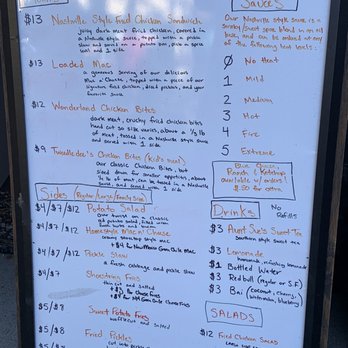 $13 Nashville Style Fried Chicken Sandwich
juicy dark meat fried chicken, covered in
a Nashville style sauce, topped with a pickle
slaw and served on a potato bun, plus a
side and 1 side
$13 Loaded Mac
a generous serving of our delicious
Mac n' Cheese, topped with a piece of our
signature fried chicken, dried pickles, and your
favorite sauce
$12 Wonderland Chicken Bites
dark meat, crunchy fried chicken bites
hand cut so size varies, about a 1/3 lb
of meat, tossed in a Nashville style sauce
and served with 1 side
$9 Tweedledee's Chicken Bites (Kid's meal)
our classic Chicken Bites, but
sized down for smaller appetites, about
1/4 lb of meat, can be tossed in a Nashville
sauce, and served with 1 side
Sides (Regular/Large/Family Size)
$4/$7/$12 Potato Salad
our twist on a classic
red potato salad, filled with
fresh herbs and
$4/$7/$12 Homestyle Mac n' Cheese
creamy stovetop style mac
+$4 for New Mexico Green Chile Mac
$4/$7/$12 Pickle Slaw
a fresh cabbage and pickle slaw
$4/$7 Shoestring Fries
thin cut and salted
+$3 for Cheese fries
+$4 for NM Green Chile Cheese Fries
$5/$8 Sweet Potato Fries
waffle cut and salted
$5/$8 Fried Pickles
Sauces
Our Nashville style sauce is a
smokey/sweet spice blend in an oil
base, and can be ordered at any
of the following heat levels:
0 No Heat
1 Mild
2 Medium
3 Hot
4 Fire
5 Extreme
Blue Cheese,
Ranch & Ketchup
available w/ orders!
$.50 for extra
Drinks No Refills
$3 Aunt Sue's Sweet Tea
Southern style sweet tea
$3 Lemonade
homemade, refreshing lemonade
$1 Bottled Water
$3 Red bull (regular or S.F.)
$3 Bai (coconut, cherry,
watermelon, blueberry)
SALADS
$12 Fried Chicken Salad